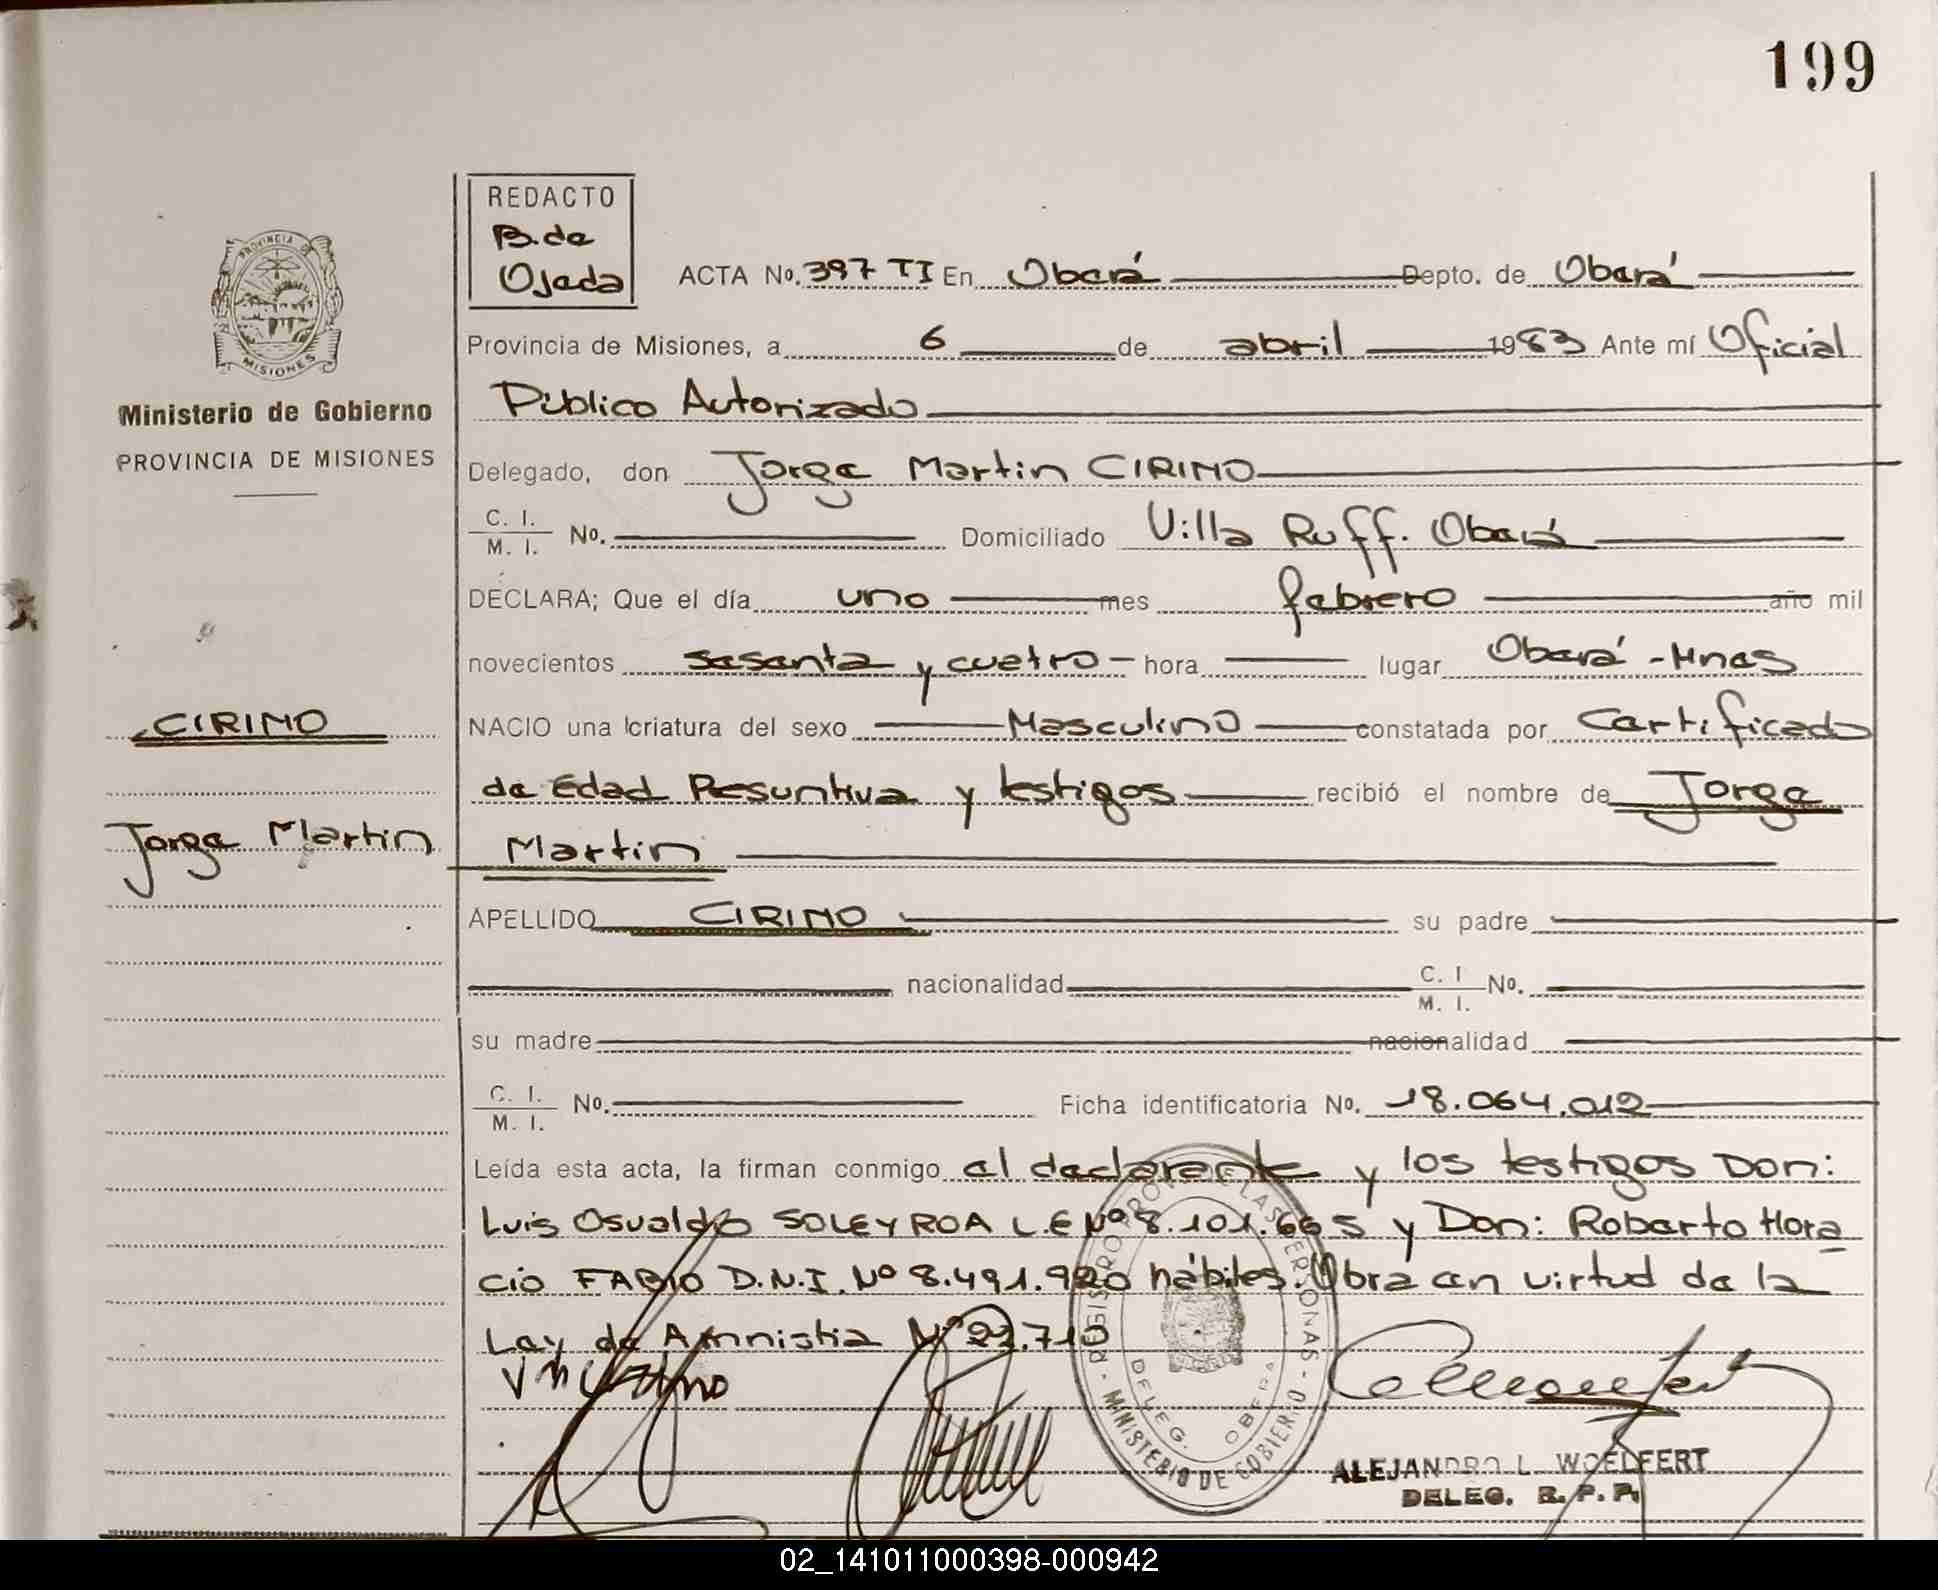 199
REDACTO
B. de
Ojeda
ACTA No. 397 TI En Oberá Depto. de Oberá
Provincia de Misiones, a 6 de abril 1983 Ante mí Oficial
Público Autorizado
Delegado, don Jorge Martin CIRINO
C. I.
M. I. No. Domiciliado Villa Ruff. Oberá
DECLARA; Que el día uno mes febrero año mil
novecientos sesenta y cuatro hora lugar Oberá - Mnes
NACIO una criatura del sexo Masculino constatada por Certificado
de Edad Presuntiva y testigos recibió el nombre de Jorge
Martin
APELLIDO CIRINO su padre
nacionalidad C. I
M. I. No.
su madre nacionalidad
C. I.
M. I. No. Ficha identificatoria No. 18.064.012
Leída esta acta, la firman conmigo el declarante y los testigos Don:
Luis Osvaldo SOLEY ROA L.E Nº 8.101.665 y Don: Roberto Hora
cio FABIO D.N.I. Nº 8.491.920 hábiles. Obra en virtud de la
Ley de Amnistia Nº 22.710
ALEJANDRO L. WOELFERT
DELEG. R. P. P.
REGISTRO PROV. DE LAS PERSONAS - MINISTERIO DE GOBIERNO -
DELEG. OBERA
PROVINCIA DE
MISIONES
Ministerio de Gobierno
PROVINCIA DE MISIONES
CIRINO
Jorge Martin
02_141011000398-000942